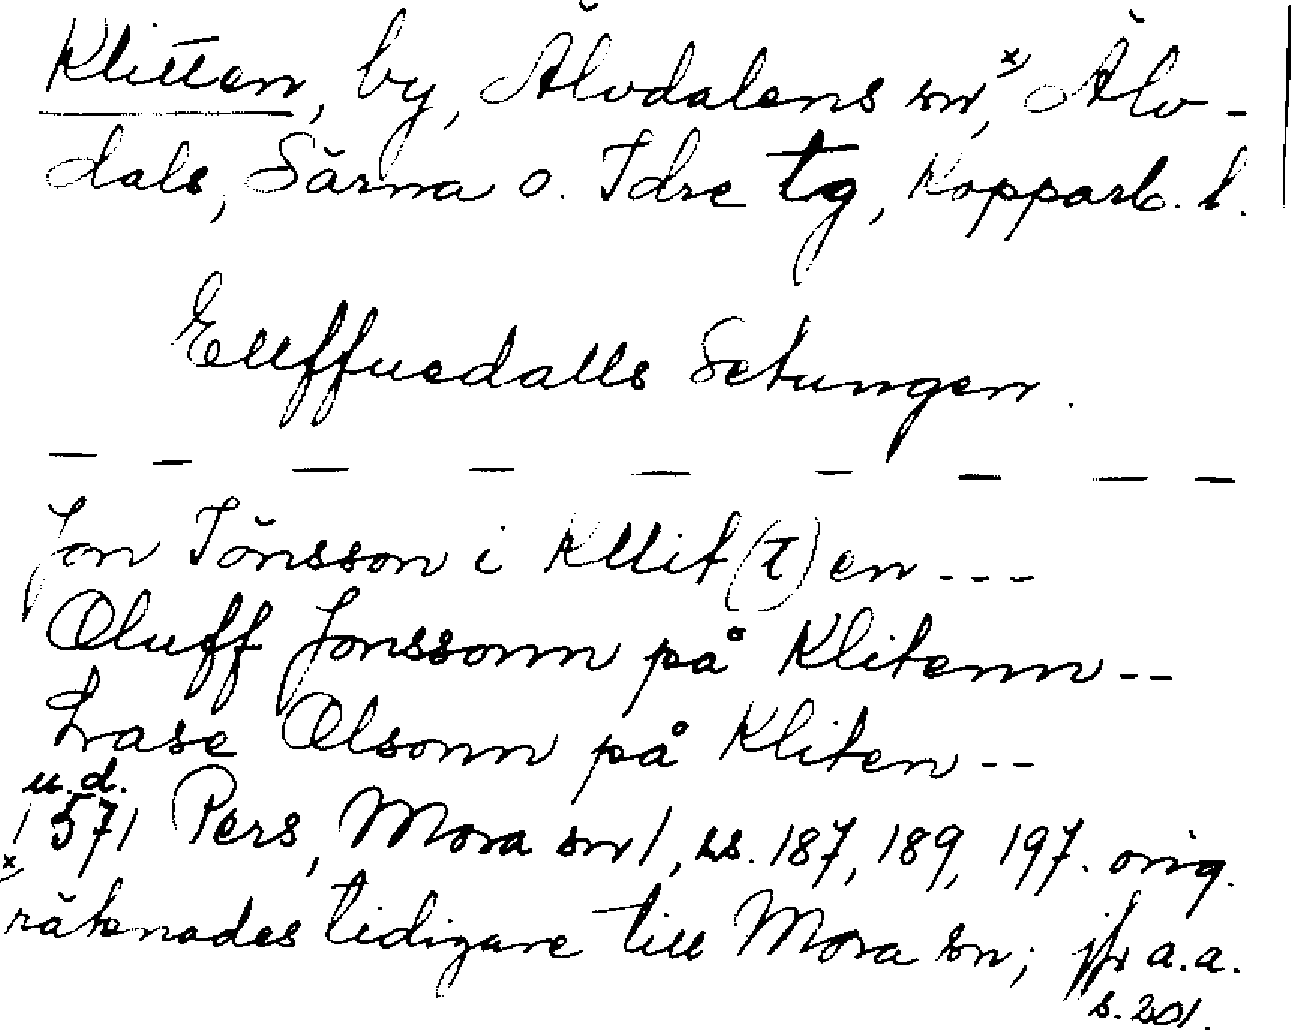 Klitten, by, Älvdalens sn,ˣ⁾ Älv-
dals, Särna o. Idre tg, Kopparb. l.
Ellffuedalls Setungen.
— — — — — — — — —
Jon Jönsson i Kllit(t)en ---
Oluff Jonssonn på Klitenn --
Lase Olsonn på Kliten --
u.d.
1571 Pers, Mora sn/, ss. 187, 189, 197. orig.
ˣ⁾ räknades tidigare till Mora sn; jfr a.a.
s. 201.